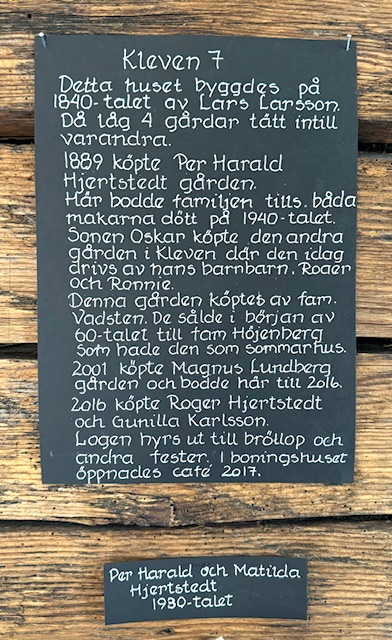 Kleven 7
Detta huset byggdes på
1840-talet av Lars Larsson.
Då låg 4 gårdar tätt intill
varandra.
1889 köpte Per Harald
Hjertstedt gården.
Här bodde familjen tills båda
makarna dött på 1940-talet.
Sonen Oskar köpte den andra
gården i Kleven där den idag
drivs av hans barnbarn. Roger
och Ronnie.
Denna gården köptes av fam.
Vadsten. De sålde i början av
60-talet till fam Höjenberg
som hade den som sommarhus.
2001 köpte Magnus Lundberg
gården och bodde här till 2016.
2016 köpte Roger Hjertstedt
och Gunilla Karlsson.
Logen hyrs ut till bröllop och
andra fester. I boningshuset
öppnades café 2017.
Per Harald och Matilda
Hjertstedt
1930-talet